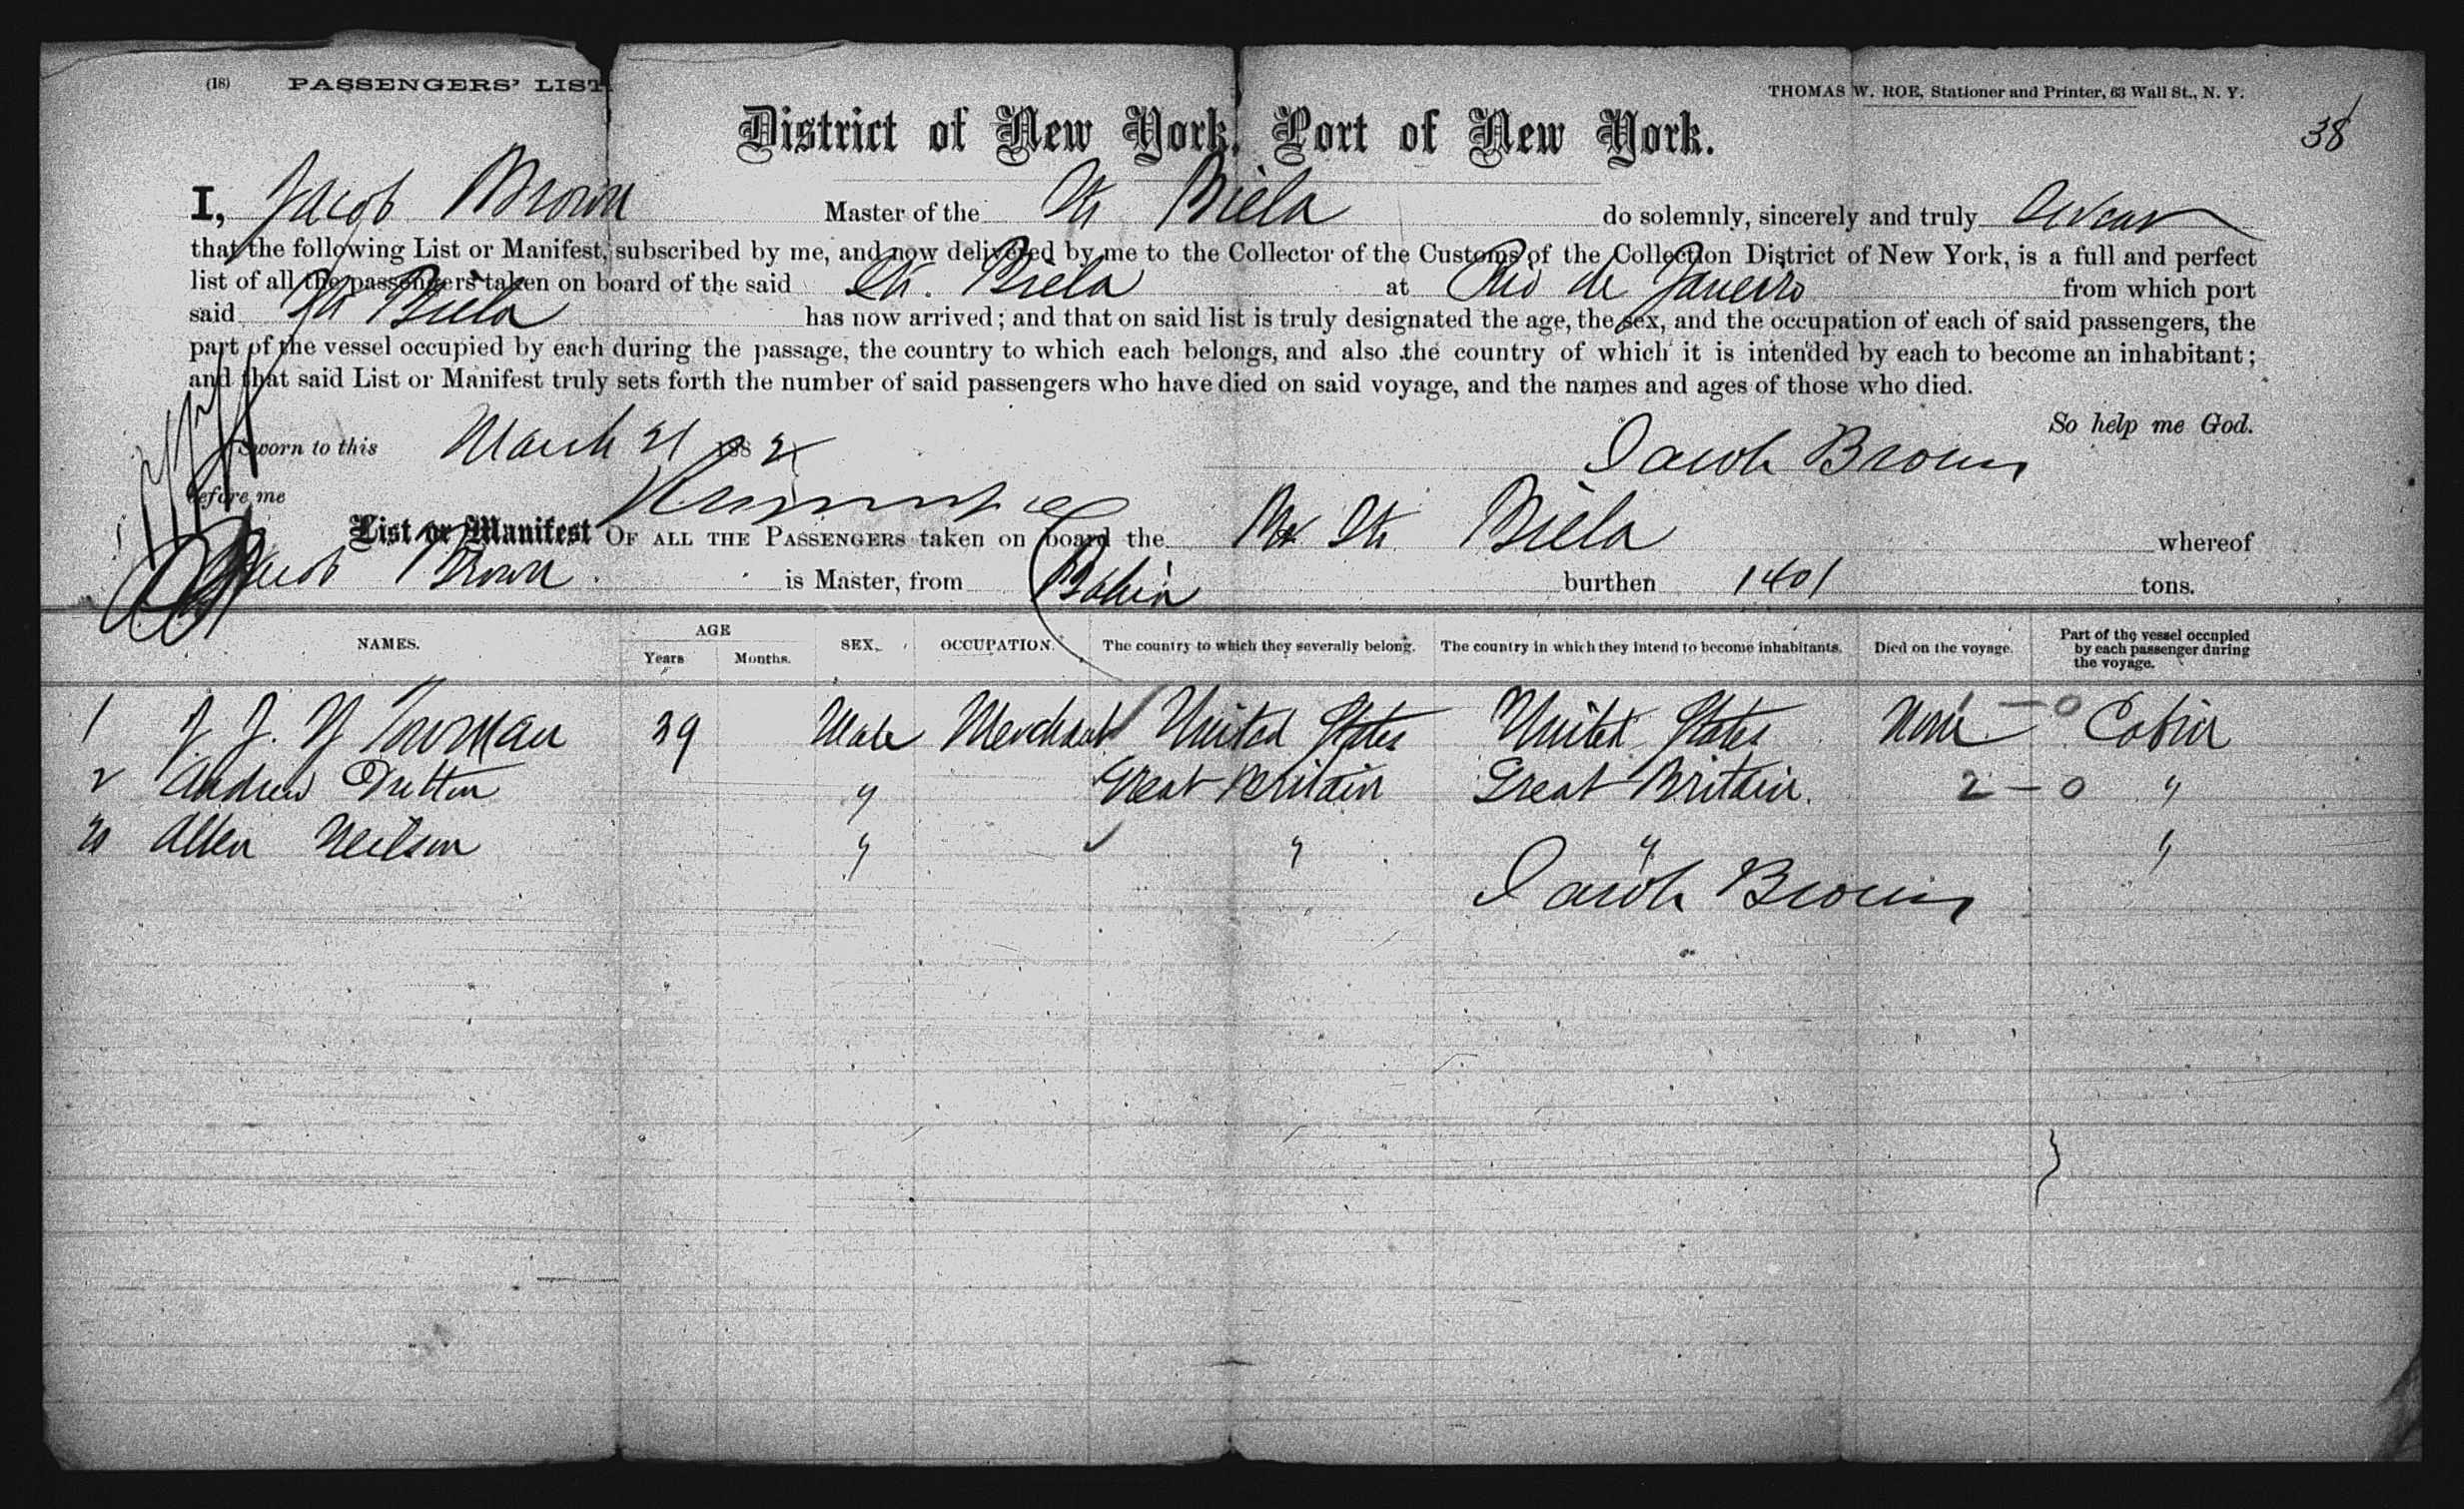 (18) PASSENGERS' LIST. THOMAS W. ROE, Stationer and Printer, 63 Wall St., N. Y.
38
District of New York, Port of New York.
I, Jacob Brown Master of the Str Biela do solemnly, sincerely and truly swear
that the following List or Manifest, subscribed by me, and now delivered by me to the Collector of the Customs of the Collection District of New York, is a full and perfect
list of all the passengers taken on board of the said Str. Biela at Rio de Janeiro from which port
said Str Biela has now arrived; and that on said list is truly designated the age, the sex, and the occupation of each of said passengers, the
part of the vessel occupied by each during the passage, the country to which each belongs, and also the country of which it is intended by each to become an inhabitant;
and that said List or Manifest truly sets forth the number of said passengers who have died on said voyage, and the names and ages of those who died.
So help me God.
Sworn to this March 21 1882 Jacob Brown
before me
List or Manifest OF ALL THE PASSENGERS taken on board the Str Biela whereof
Jacob Brown is Master, from Bahia burthen 1401 tons.
NAMES. AGE Years Months. SEX. OCCUPATION. The country to which they severally belong. The country in which they intend to become inhabitants. Died on the voyage. Part of the vessel occupied by each passenger during the voyage.
1 J. J. Y Towman 39 Male Merchant United States United States None - 0 Cabin
2 Andrew Dutton " Great Britain Great Britain. 2 - 0 "
3 Allen Neilson " " " "
Jacob Brown